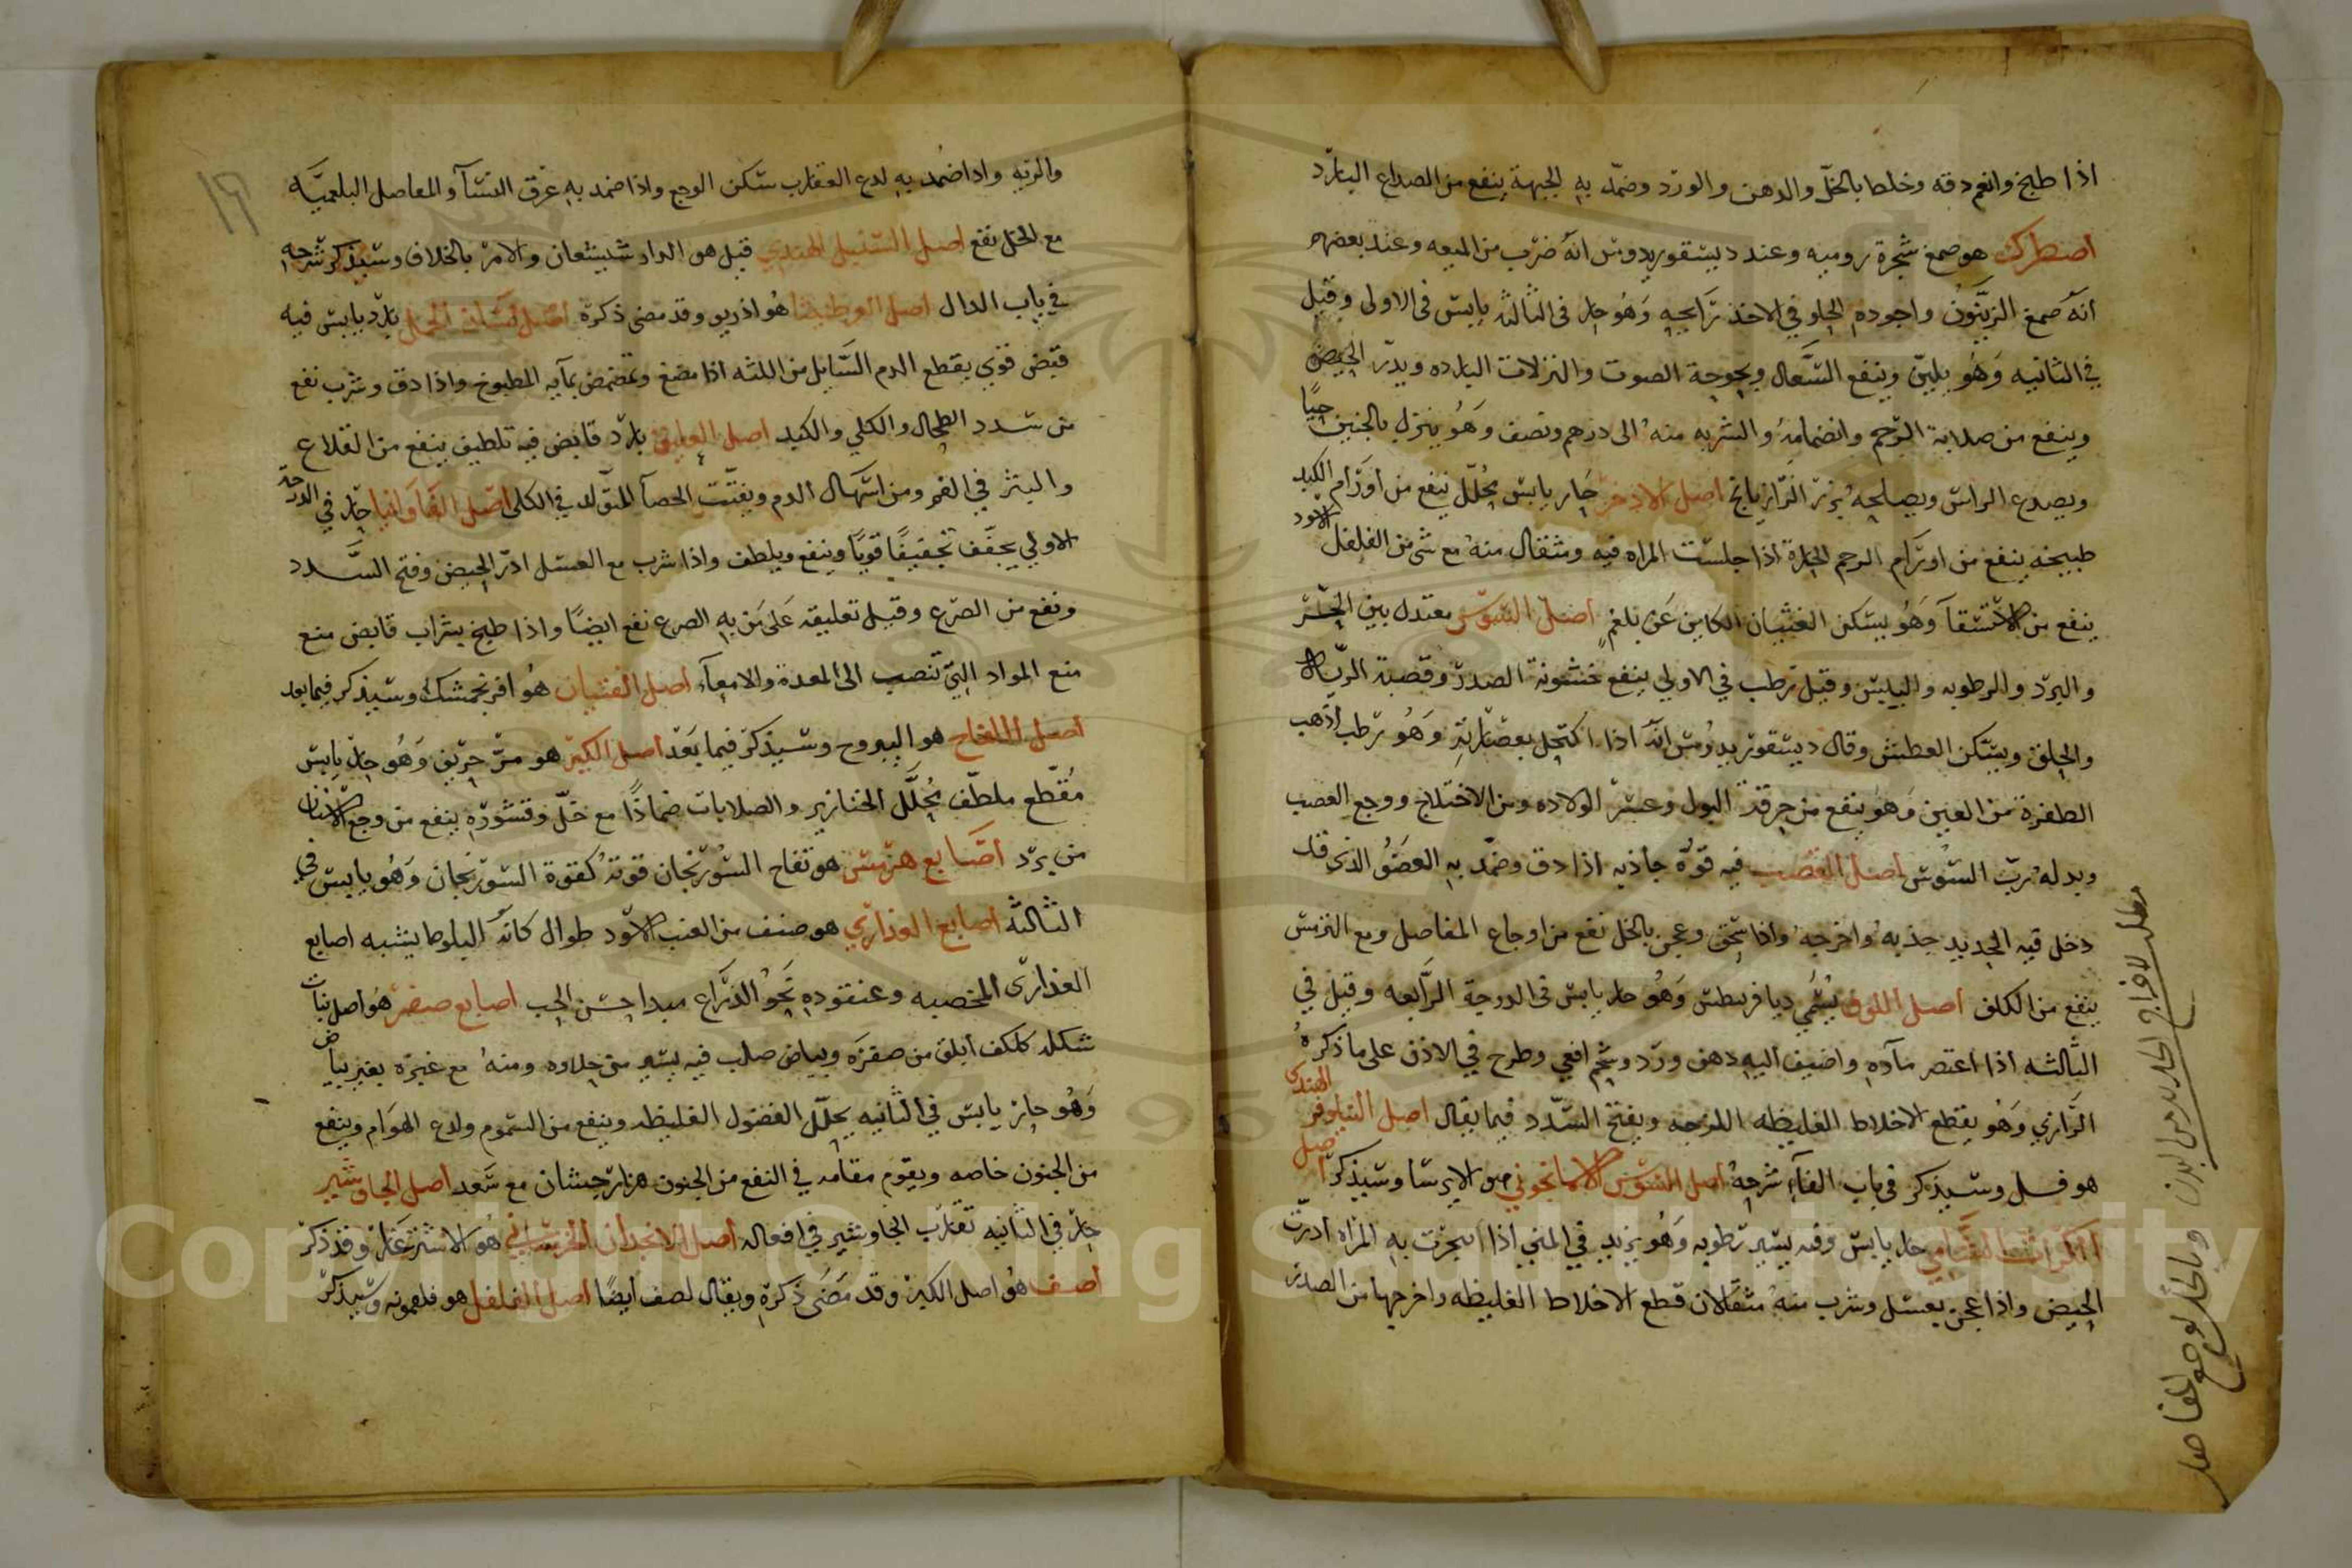 اذا طبخ وانعم دقه وخلط بالخلّ والدهن والورد وضمّد به الجبهة ينفع من الصداع البارد
اصطرك هو صمغ شجرة روميه وعند ديسقوريدوس انه ضرب من الميعه وعند بعضهم
انه صمغ الزيتون واجوده الحلو في الاخذ رايحه وهو حار في الثالثه يابس في الاولى وقيل
في الثانيه وهو يليّن وينفع السعال وبحوحة الصوت والنزلات البارده ويدرّ الحيض
وينفع من صلابة الرحم وانضمامه والشربه منه الى درهم ونصف وهو ينزل بالجنين حيًا
ويصدع الراس ويصلحه بزر الرازيانج اصل الاذخر حار يابس يحلل ينفع من اورام الكبد
طبيخه ينفع من اورام الرحم الحارة اذا جلست المراه فيه ومثقال منه مع شي من الفلفل الاسود
ينفع من الاستسقآ وهو يسكن الغثيان الكاين عن بلغم اصل السوس معتدل بين الحر
والبرد والرطوبه واليبس وقيل رطب في الاولى ينفع خشونة الصدر وقصبة الرية
والحلق ويسكن العطش وقال ديسقوريدوس انه اذا اكتحل بعصارته وهو رطب اذهب
الظفرة من العين وهو ينفع من حرقة البول وعسر الولاده ومن الاختلاج ووجع العصب
وبدله ربّ السوس اصل القصب فيه قوّة جاذبه اذا دق وضمّد به العضو الذي قد
دخل فيه الحديد جذبه واخرجه واذا سحق وعجن بالخل نفع من اوجاع المفاصل ومع الترمس
ينفع من الكلف اصل اللوف يسمي دياقريطس وهو حار يابس في الدرجة الرابعه وقيل في
الثالثه اذا اعتصر مآوه واضيف اليه دهن ورد وشحم افعي وطرح في الاذن على ما ذكره
الرازي وهو يقطع الاخلاط الغليظه اللزجه ويفتح السدد فيما يقال اصل النيلوفر الهندي
هو فل وسيذكر في باب الفآء شرحه اصل السوسن الاسمانجوني هو الايرسا وسيذكر اصل
الكراث الشامي حار يابس وفيه يسير رطوبه وهو يزيد في المني اذا ابخرت به المراه ادرّت
الحيض واذا عجن بعسل وشرب منه مثقالان قطع الاخلاط الغليظه واخرجها من الصدر
مطلب لاخراج الحديد من البدن وبالخل لوجع المفاصل
١٦
والريه واذا ضُمد به لدع العقارب سكن الوجع واذا ضمد به عرق النسآ والمفاصل البلغميّه
مع الخل نفع اصل السنبل الهندي قيل هو الدار شيشعان والامر بالخلاف وسيذكر شرحه
في باب الدال اصل العرطنيثا هو اذريو وقد مضى ذكره اصل لسان الحمل بارد يابس فيه
قبض قوي يقطع الدم السايل من اللثه اذا مضغ وتمضمض بمآيه المطبوخ واذا دق وشرب نفع
من سدد الطحال والكلي والكبد اصل العليق بارد قابض فيه تلطيف ينفع من القلاع
والبثر في الفم ومن اسهال الدم ويفتّت الحصآ المتولد في الكلى اصل الفاوانيا حار في الدرجة
الاولي يجفّف تجفيفًا قويًا وينفع ويلطف واذا شرب مع العسل ادرّ الحيض وفتح السدد
ونفع من الصرع وقيل تعليقه على من به الصرع نفع ايضًا واذا طبخ بشراب قابض منع
منع المواد التي تنصب الى المعدة والامعآء اصل الفتيان هو افرنجمشك وسيذكر فيما بعد
اصل اللفاح هو اليبروح وسيذكر فيما بعد اصل الكبر هو مرّ حريف وهو حار يابس
مُقطّع ملطّف يحُلّل الخنازير والصلابات ضمادًا مع خلّ وقشوره ينفع من وجع الاسنان
من برد اصابع هرمس هو تفاح السورنجان قوته كقوة السورنجان وهو يابس في
الثالثة اصابع العذاري هو صنف من العنب الاسود طوال كانه البلوط يشبه اصابع
العذارى المخضبه وعنقوده نحو الذراع ميدا حسن الحب اصابع صفر هو اصل نبات
شكله كالكف ابلق من صفره وبياض صلب فيه يسير من حلاوه ومنه مع غبره بغير بياض
وهو حار يابس في الثانيه يحلّل الفضول الغليظه وينفع من السموم ولدع الهوام وينفع
من الجنون خاصه ويقوم مقامه في النفع من الجنون هزار جشان مع سَعد اصل الجاوشير
حار في الثانيه تقارب الجاوشير في افعاله اصل الانجدان الخرساني هو الاشترغاز وقد ذكر
اصف هو اصل الكبر وقد مضى ذكره ويقال لصف ايضًا اصل الفلفل هو فلفمونه وسيذكر
Copyright © King Saud University